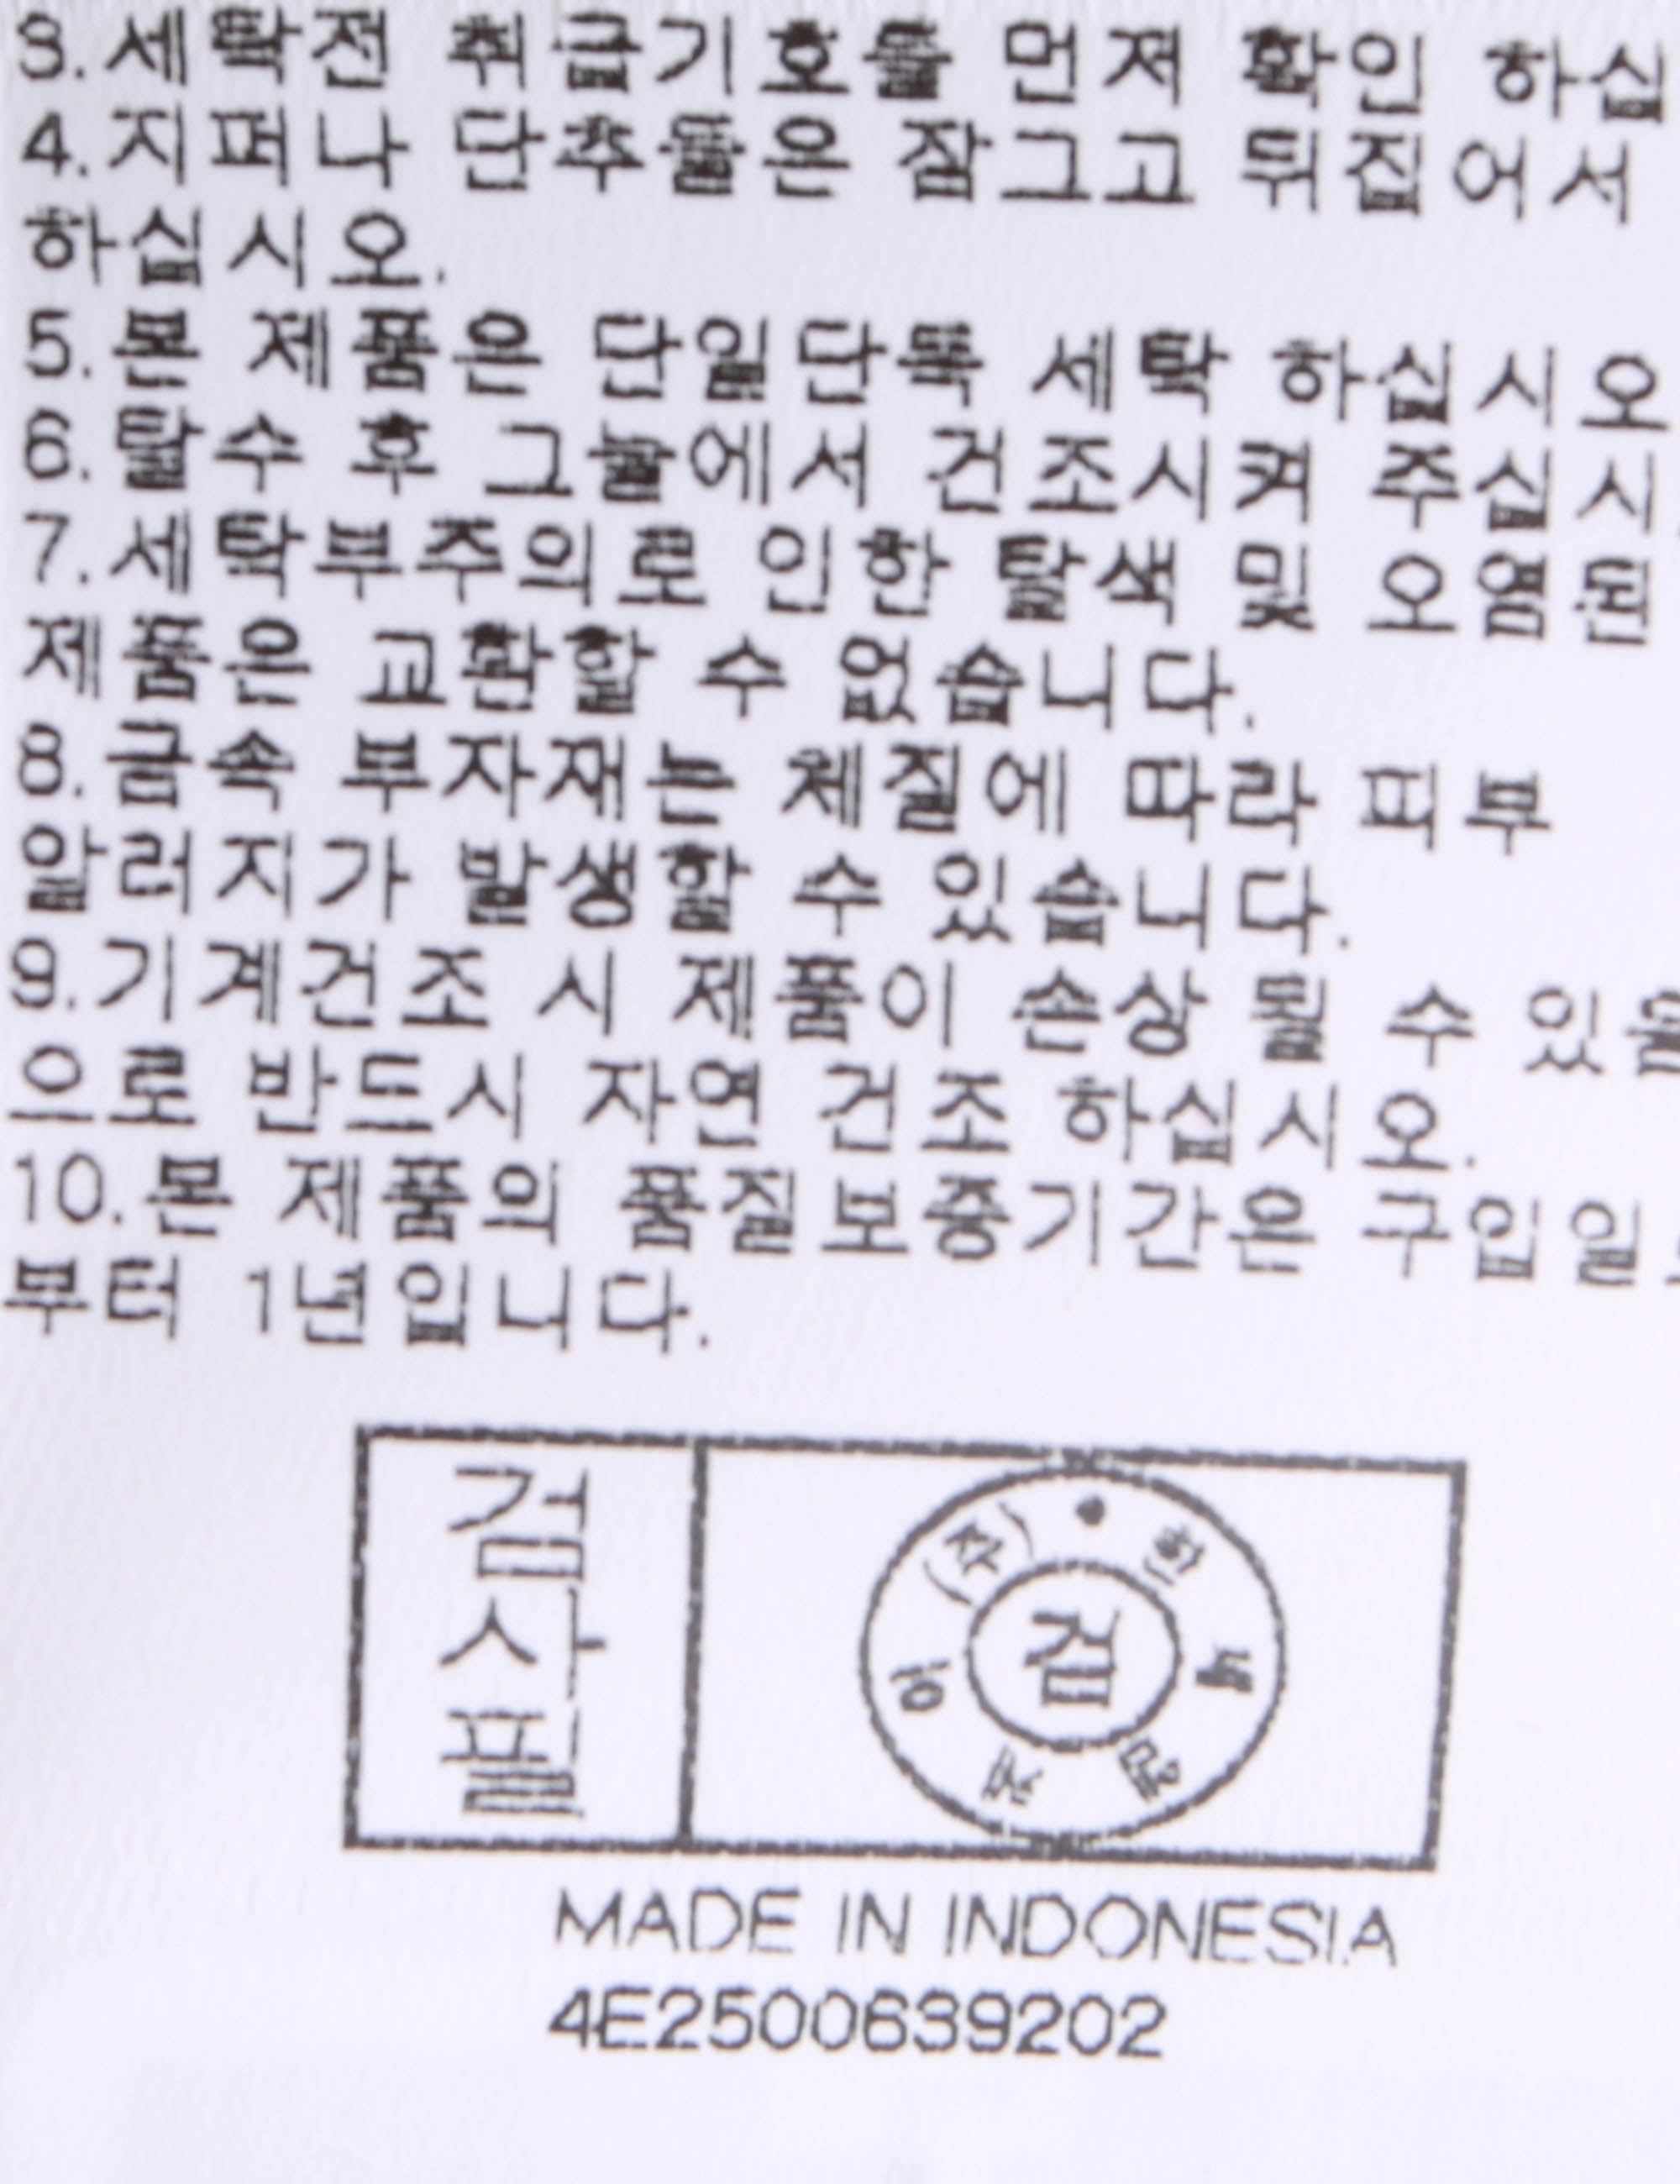 3.세탁전 취급기호를 먼저 확인 하십
4.지퍼나 단추들은 잠그고 뒤집어서
하십시오.
5.본 제품은 단일단독 세탁 하십시오
6.탈수 후 그늘에서 건조시켜 주십시
7.세탁부주의로 인한 탈색 및 오염된
제품은 교환할 수 없습니다.
8.금속 부자재는 체질에 따라 피부
알러지가 발생할 수 있습니다.
9.기계건조 시 제품이 손상 될 수 있음
으로 반드시 자연 건조 하십시오.
10.본 제품의 품질보증기간은 구입일
부터 1년입니다.
검사필
검
(주)
MADE IN INDONESIA
4E2500639202